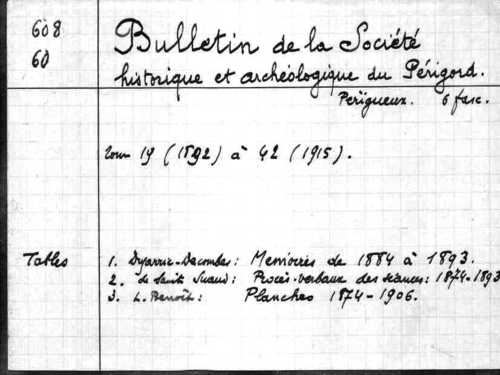 608
60
Bulletin de la Société
historique et archéologique du Périgord.
Périgueux. 6 fasc.
Tom 19 (1892) à 42 (1915).
Tables
1. Dujarric-Descombes: Memoires de 1884 à 1893.
2. de Saint Suaud: Procès-verbaux des séances: 1874-1893
3. L. Benoît: Planches 1874-1906.